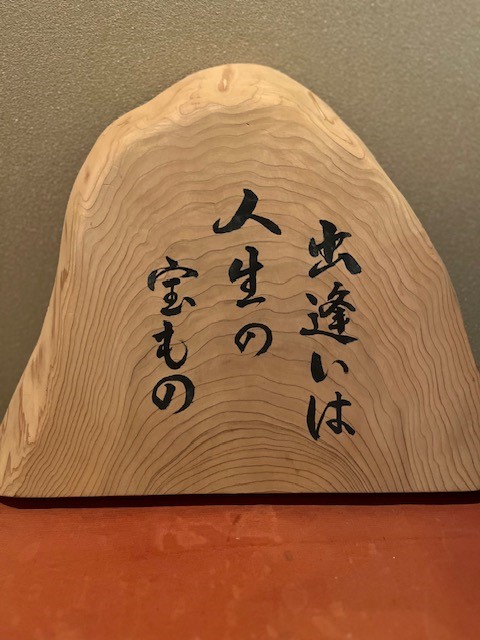 出逢いは
人生の
宝もの